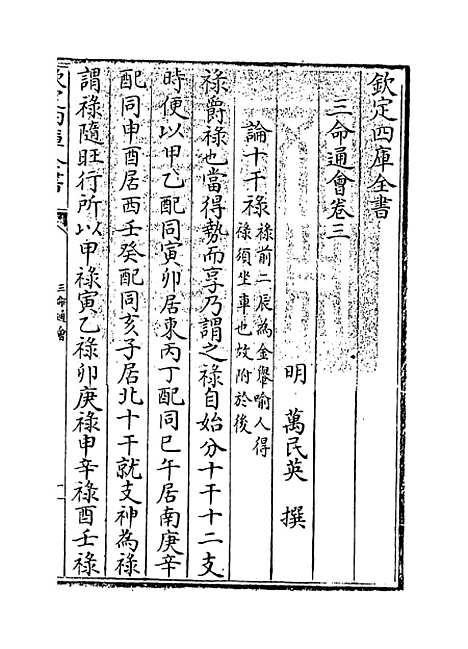 欽定四庫全書
三命通會卷三
明 萬民英 撰
論十干祿祿前二辰為金轝喻人得
祿須坐車也故附於後
祿爵祿也當得勢而享乃謂之祿自始分十干十二支
時便以甲乙配同寅卯居東丙丁配同巳午居南庚辛
配同申酉居西壬癸配同亥子居北十干就支神為祿
謂祿隨旺行所以甲祿寅乙祿卯庚祿申辛祿酉壬祿
欽定四庫全書
三命通會
一